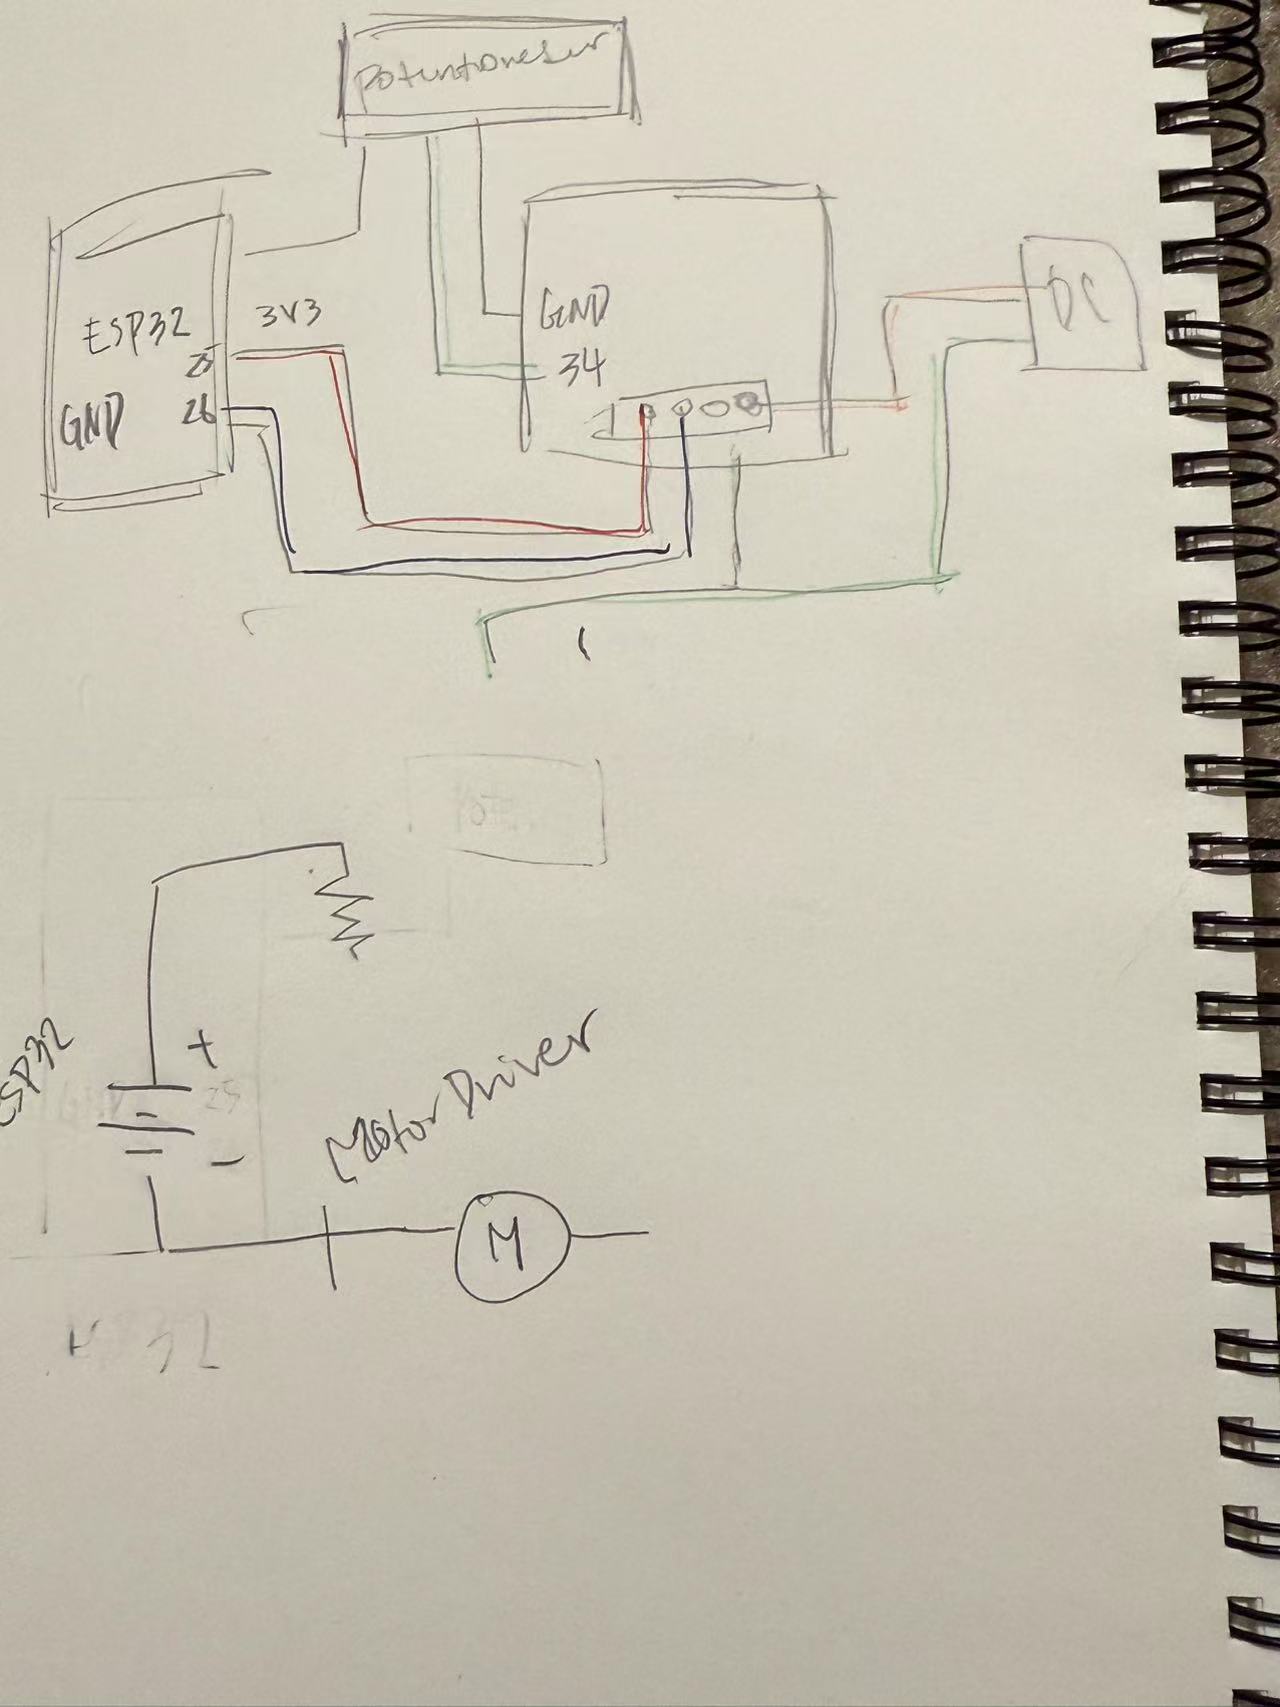 Potentiometer
ESP32
3V3
25
GND
26
GND
34
DC
ESP32
+
25
-
Motor Driver
M
ESP32